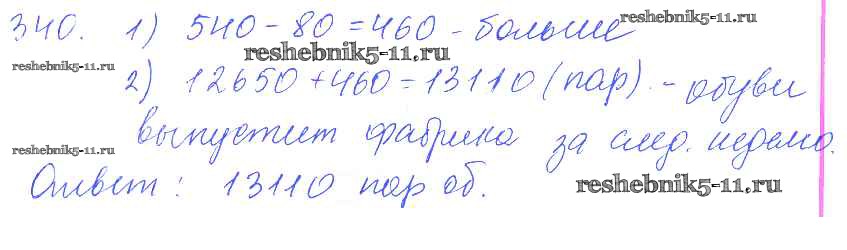 340. 1) 540 - 80 = 460 - больше
reshebnik5-11.ru
reshebnik5-11.ru
reshebnik5-11.ru
2) 12650 + 460 = 13110 (пар) - обуви
выпустит фабрика за след. неделю.
reshebnik5-11.ru
Ответ: 13110 пар об.
reshebnik5-11.ru